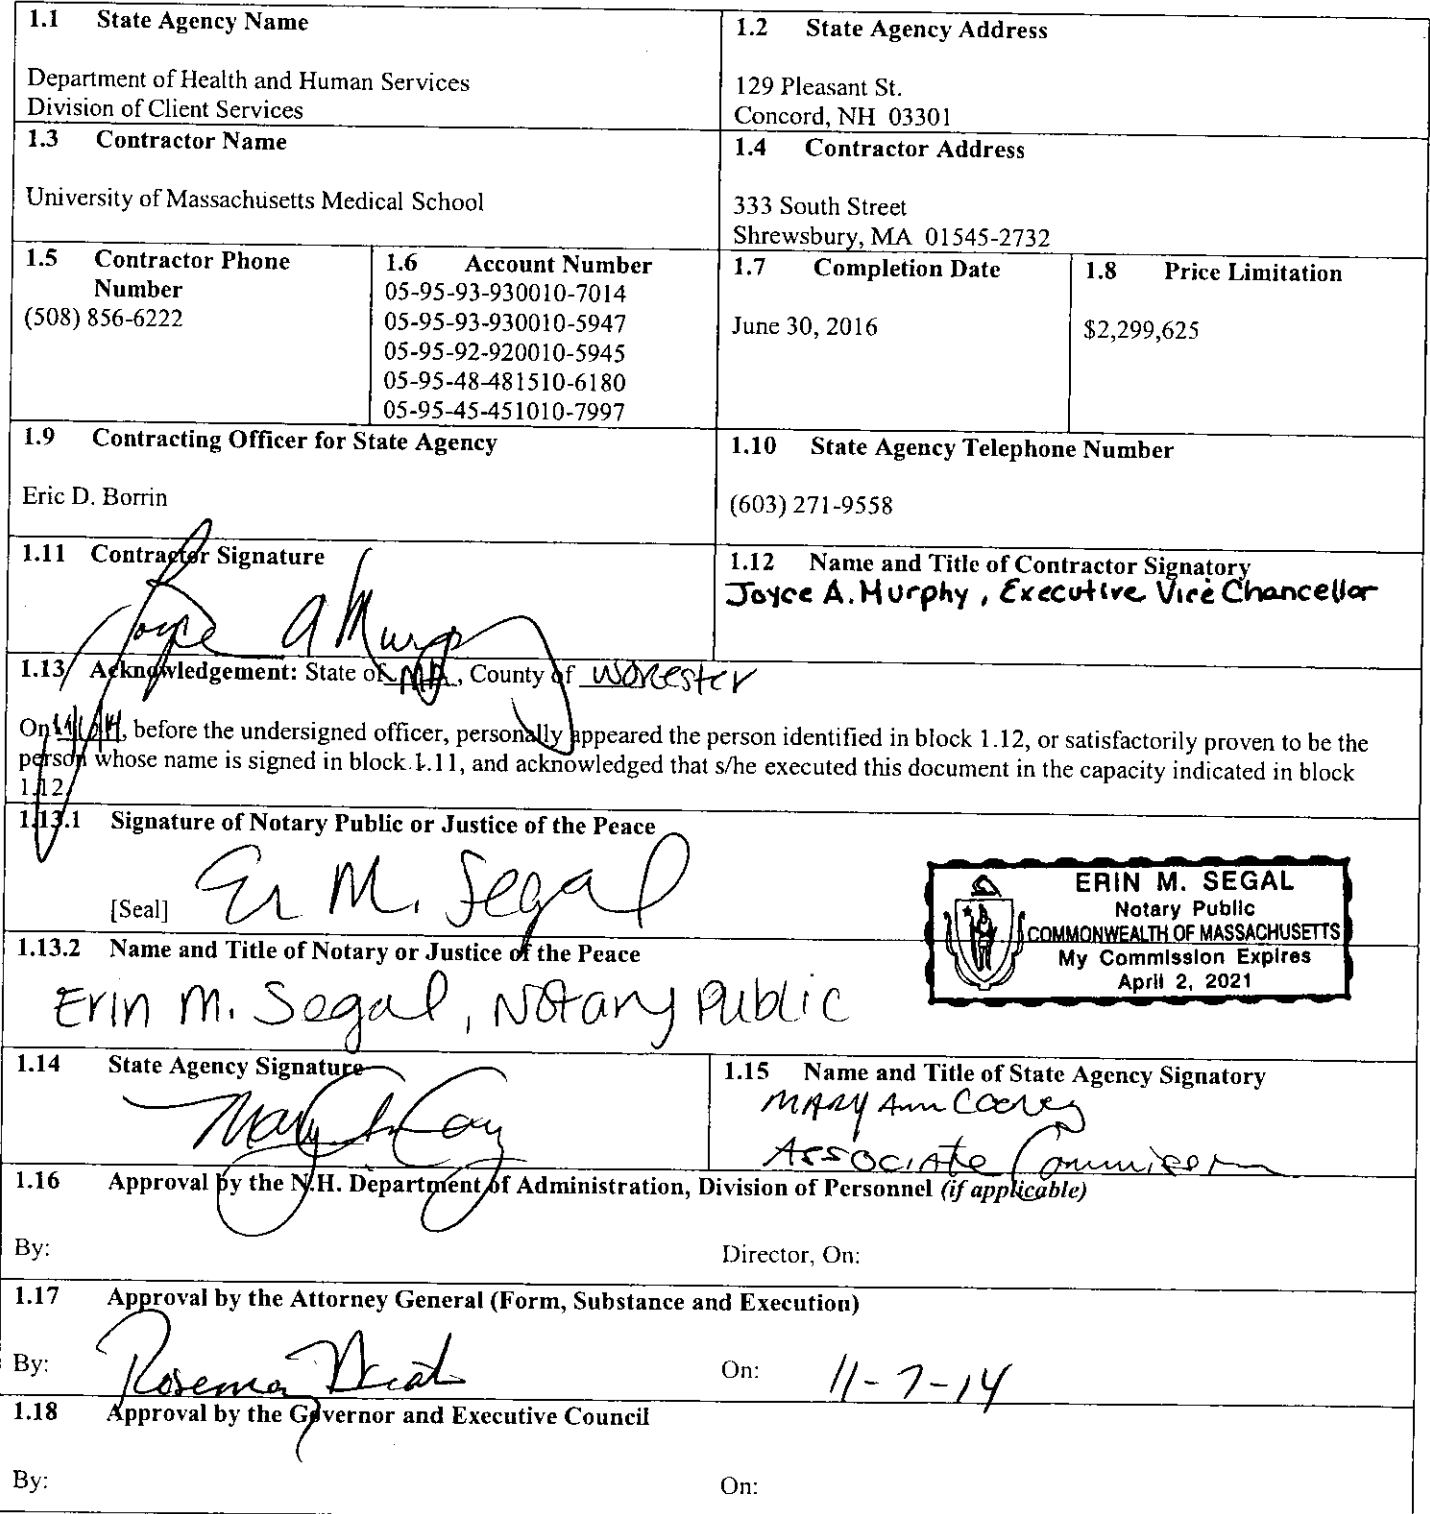 1.1 State Agency Name
Department of Health and Human Services
Division of Client Services
1.2 State Agency Address
129 Pleasant St.
Concord, NH 03301
1.3 Contractor Name
University of Massachusetts Medical School
1.4 Contractor Address
333 South Street
Shrewsbury, MA 01545-2732
1.5 Contractor Phone
Number
(508) 856-6222
1.6 Account Number
05-95-93-930010-7014
05-95-93-930010-5947
05-95-92-920010-5945
05-95-48-481510-6180
05-95-45-451010-7997
1.7 Completion Date
June 30, 2016
1.8 Price Limitation
$2,299,625
1.9 Contracting Officer for State Agency
Eric D. Borrin
1.10 State Agency Telephone Number
(603) 271-9558
1.11 Contractor Signature
Joyce A Murphy
1.12 Name and Title of Contractor Signatory
Joyce A. Murphy, Executive Vice Chancellor
1.13 Acknowledgement: State of MA, County of Worcester
On , before the undersigned officer, personally appeared the person identified in block 1.12, or satisfactorily proven to be the
person whose name is signed in block 1.11, and acknowledged that s/he executed this document in the capacity indicated in block
1.12.
1.13.1 Signature of Notary Public or Justice of the Peace
[Seal] M. Segal
ERIN M. SEGAL
Notary Public
COMMONWEALTH OF MASSACHUSETTS
My Commission Expires
April 2, 2021
1.13.2 Name and Title of Notary or Justice of the Peace
Erin M. Segal, Notary Public
1.14 State Agency Signature
1.15 Name and Title of State Agency Signatory
MARY Ann Cooney
Associate Commissioner
1.16 Approval by the N.H. Department of Administration, Division of Personnel (if applicable)
By:
Director, On:
1.17 Approval by the Attorney General (Form, Substance and Execution)
By:
On: 11-7-14
1.18 Approval by the Governor and Executive Council
By:
On: